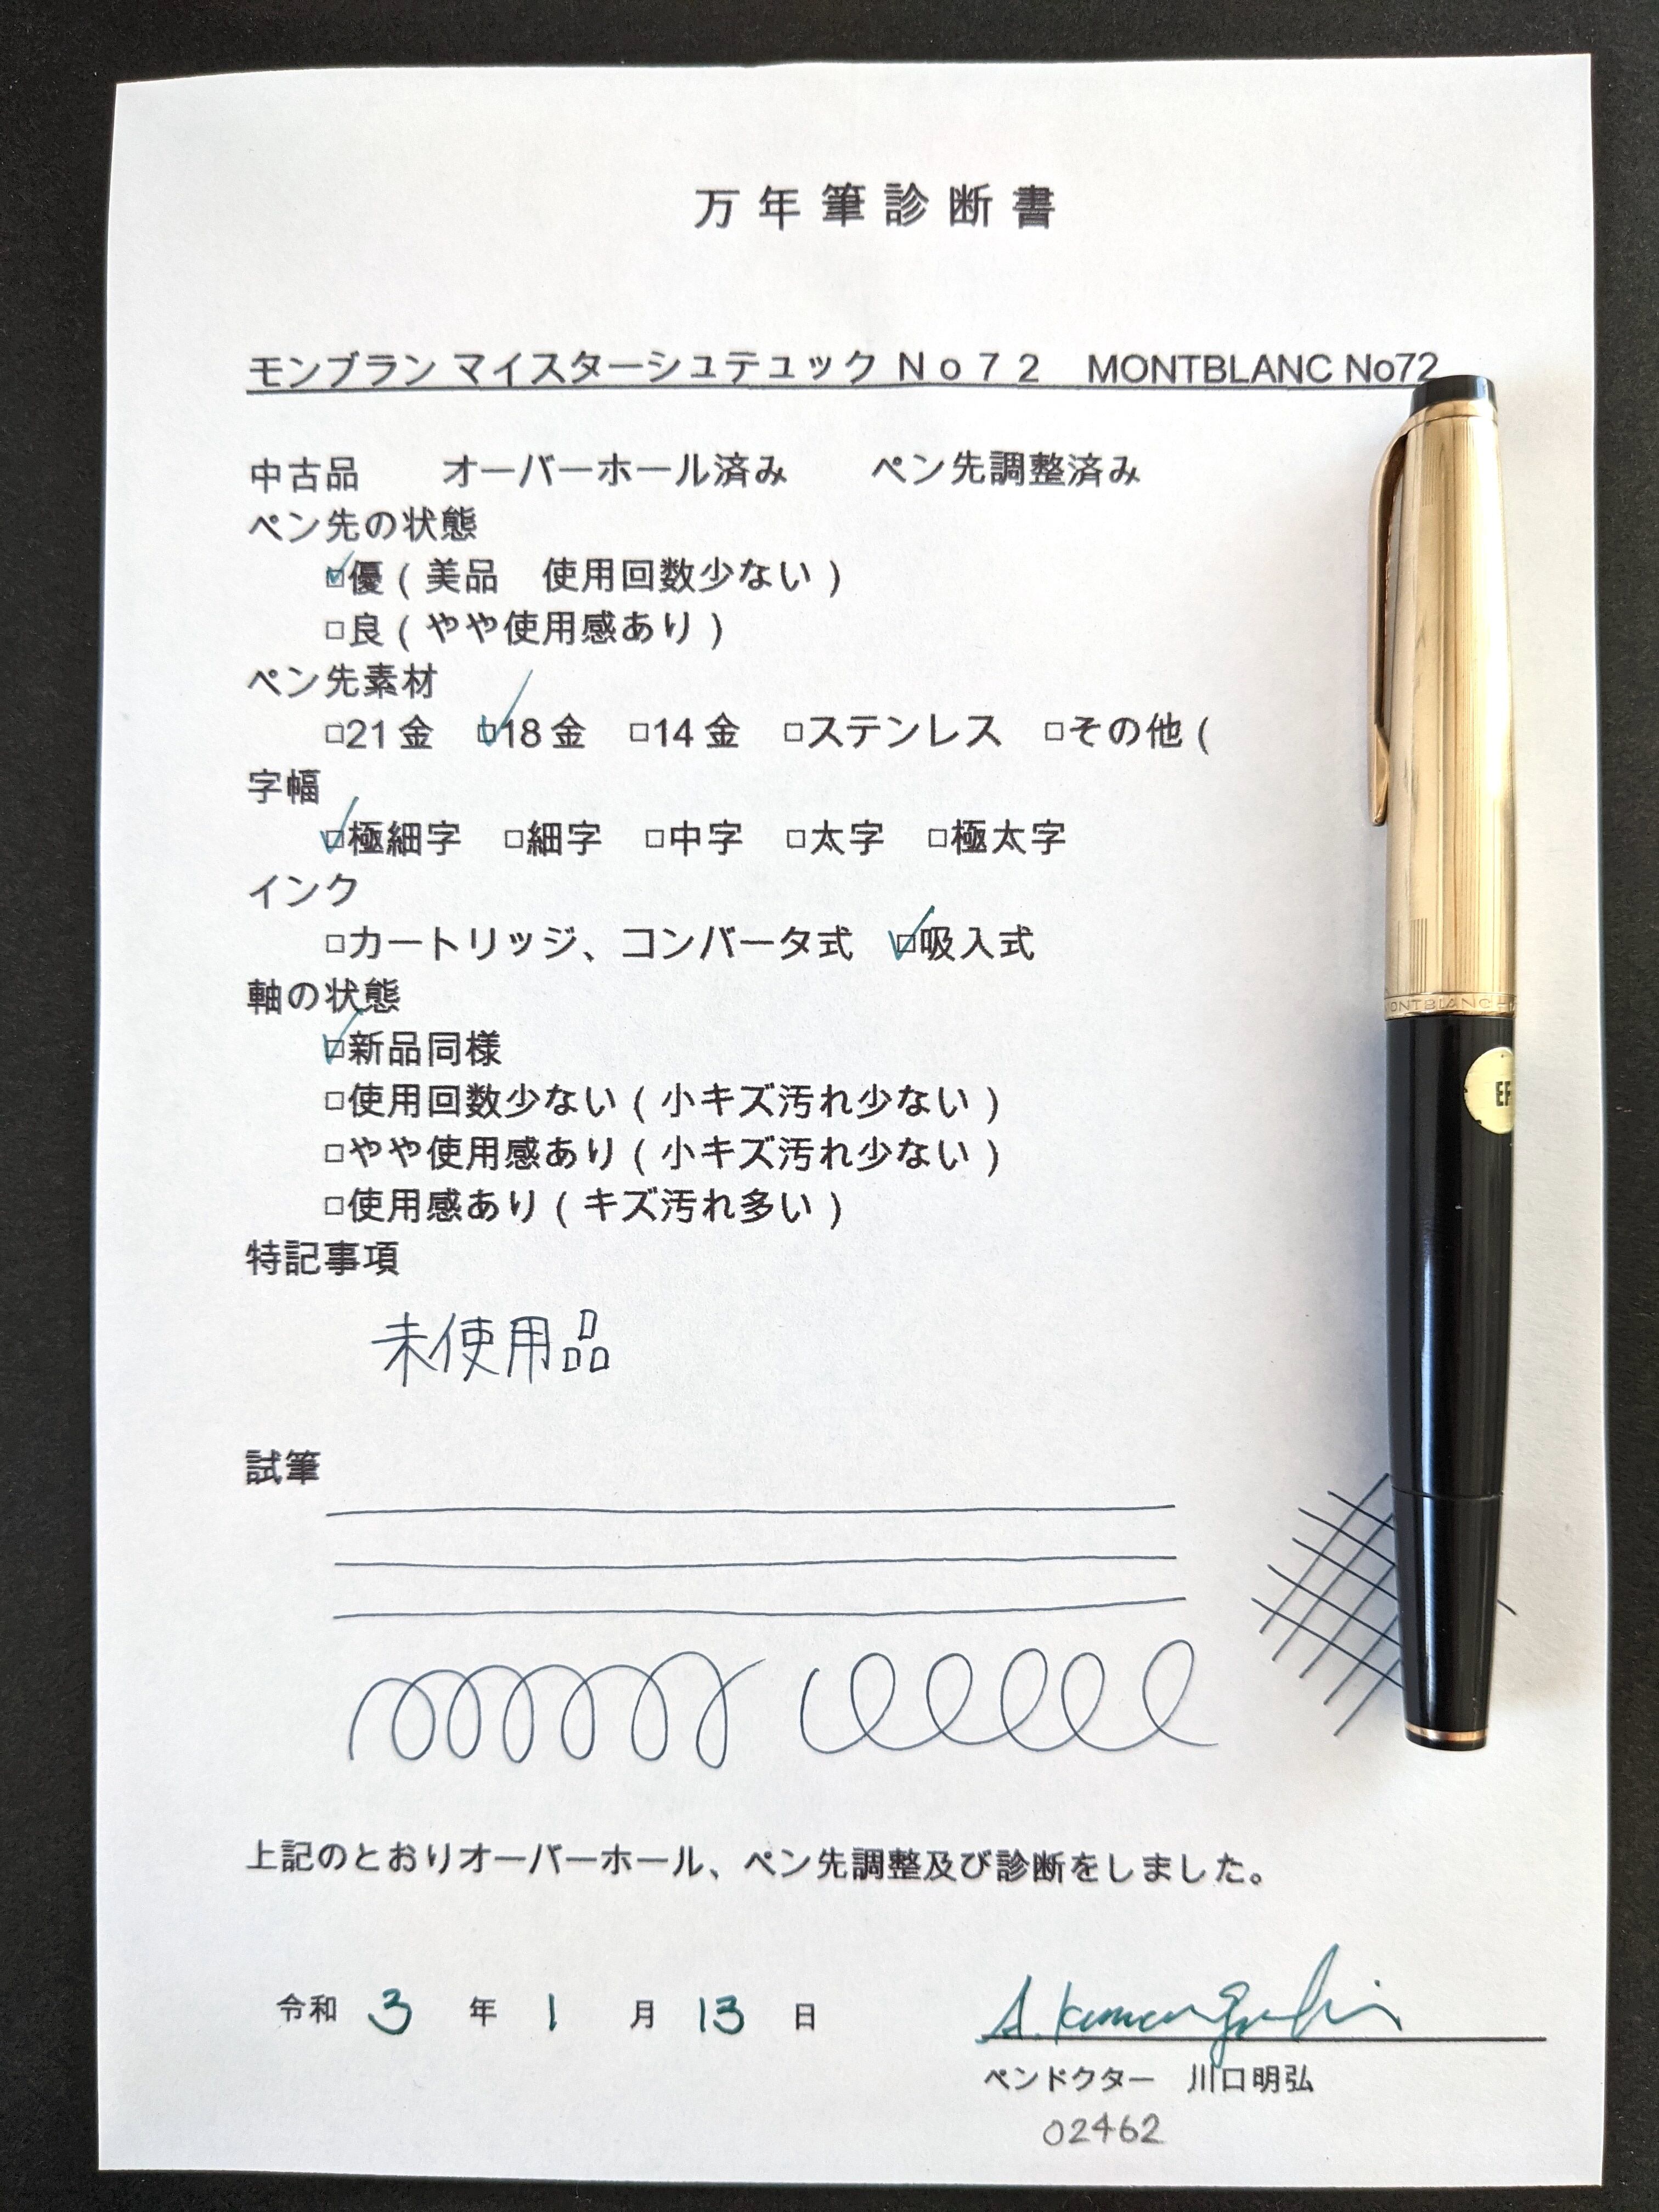 万年筆診断書
モンブラン マイスターシュテュック No72　MONTBLANC No72
中古品　オーバーホール済み　ペン先調整済み
ペン先の状態
☑優(美品　使用回数少ない)
□良(やや使用感あり)
ペン先素材
□21金　☑18金　□14金　□ステンレス　□その他(
字幅
☑極細字　□細字　□中字　□太字　□極太字
インク
□カートリッジ、コンバータ式　☑吸入式
軸の状態
☑新品同様
□使用回数少ない(小キズ汚れ少ない)
□やや使用感あり(小キズ汚れ少ない)
□使用感あり(キズ汚れ多い)
特記事項
未使用品
試筆
上記のとおりオーバーホール、ペン先調整及び診断をしました。
令和 3 年 1 月 13 日
ペンドクター　川口明弘
02462
ONTBLANC
EF